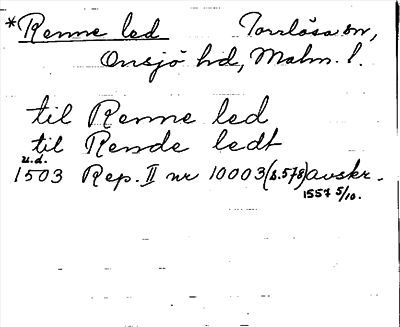 *Renne led Torrlösa sn,
Onsjö hd, Malm. l.
til Renne led
til Rende ledt
u.d.
1503 Rep. II nr 10003 (s.578) avskr.
1557 5/10.